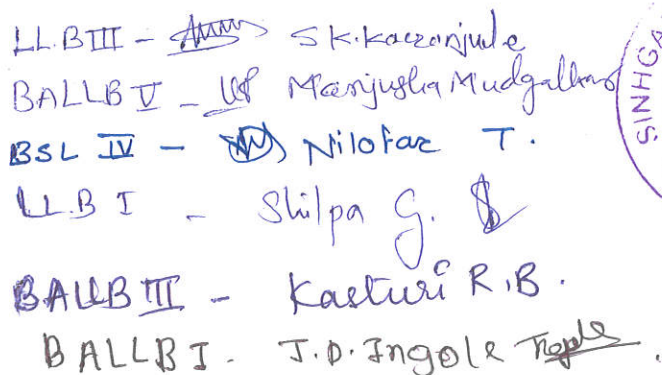 LL.B III - S.K. Karanjule
BALLB V - Manjusha Mudgalkar
BSL IV - Nilofar T.
LL.B I - Shilpa G.
BALLB III - Kasturi R.B.
BALLB I - J.D. Ingole
SINHGA